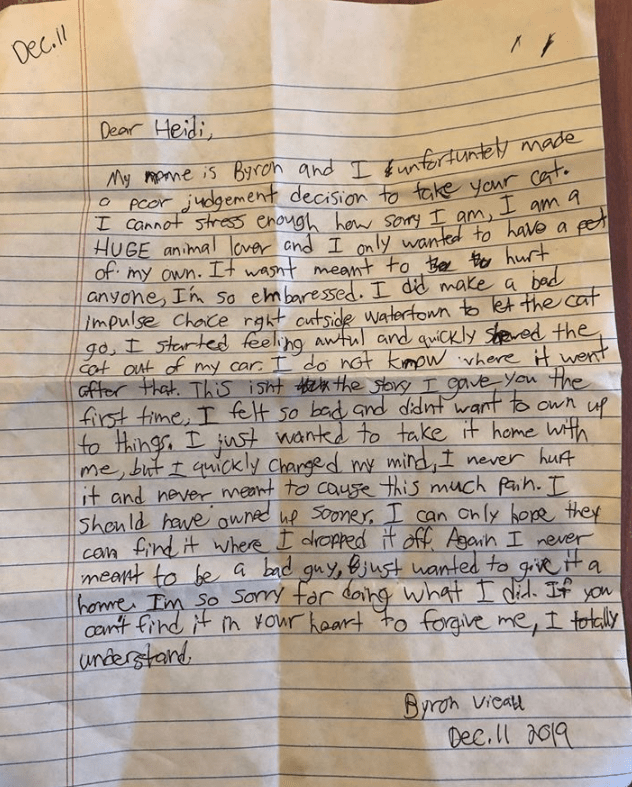 Dec.11
Dear Heidi,
My name is Byron and I unfortuntely made
a poor judgement decision to take your cat.
I cannot stress enough how sorry I am, I am a
HUGE animal lover and I only wanted to have a pet
of my own. It wasnt meant to hurt
anyone, I'm so embaressed. I did make a bad
impulse choice right outside Watertown to let the cat
go, I started feeling awful and quickly the
cat out of my car. I do not know where it went
after that. This isnt the story I gave you the
first time, I felt so bad and didnt want to own up
to things. I just wanted to take it home with
me, but I quickly changed my mind, I never hurt
it and never meant to cause this much pain. I
should have owned up sooner. I can only hope they
can find it where I dropped it off. Again I never
meant to be a bad guy, I just wanted to give it a
home. I'm so sorry for doing what I did. If you
can't find it in your heart to forgive me, I totally
understand.
Byron
Dec.11 2019